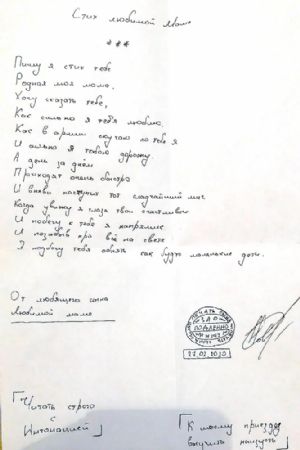 Стих любимой Маме
***
Пишу я стих тебе
Родная моя мама,
Хочу сказать тебе,
Как сильно я тебя люблю.
Как в армии скучаю по тебе я
И сильно я тобою дорожу
А день за днём
Проходят очень быстро
И вновь наступит тот сладчайший миг
Когда увижу я глаза твои счастливые
И побегу к тебе я напрямик
И позабыв про всё на свете
Я подбегу тебя обнять как будто маленькие дети.
От любящего сына
Любимой маме
ПЕЧАТЬ
ПОДЛИННО
Читать строго
с
Интонацией
К моему приезду
выучить наизусть